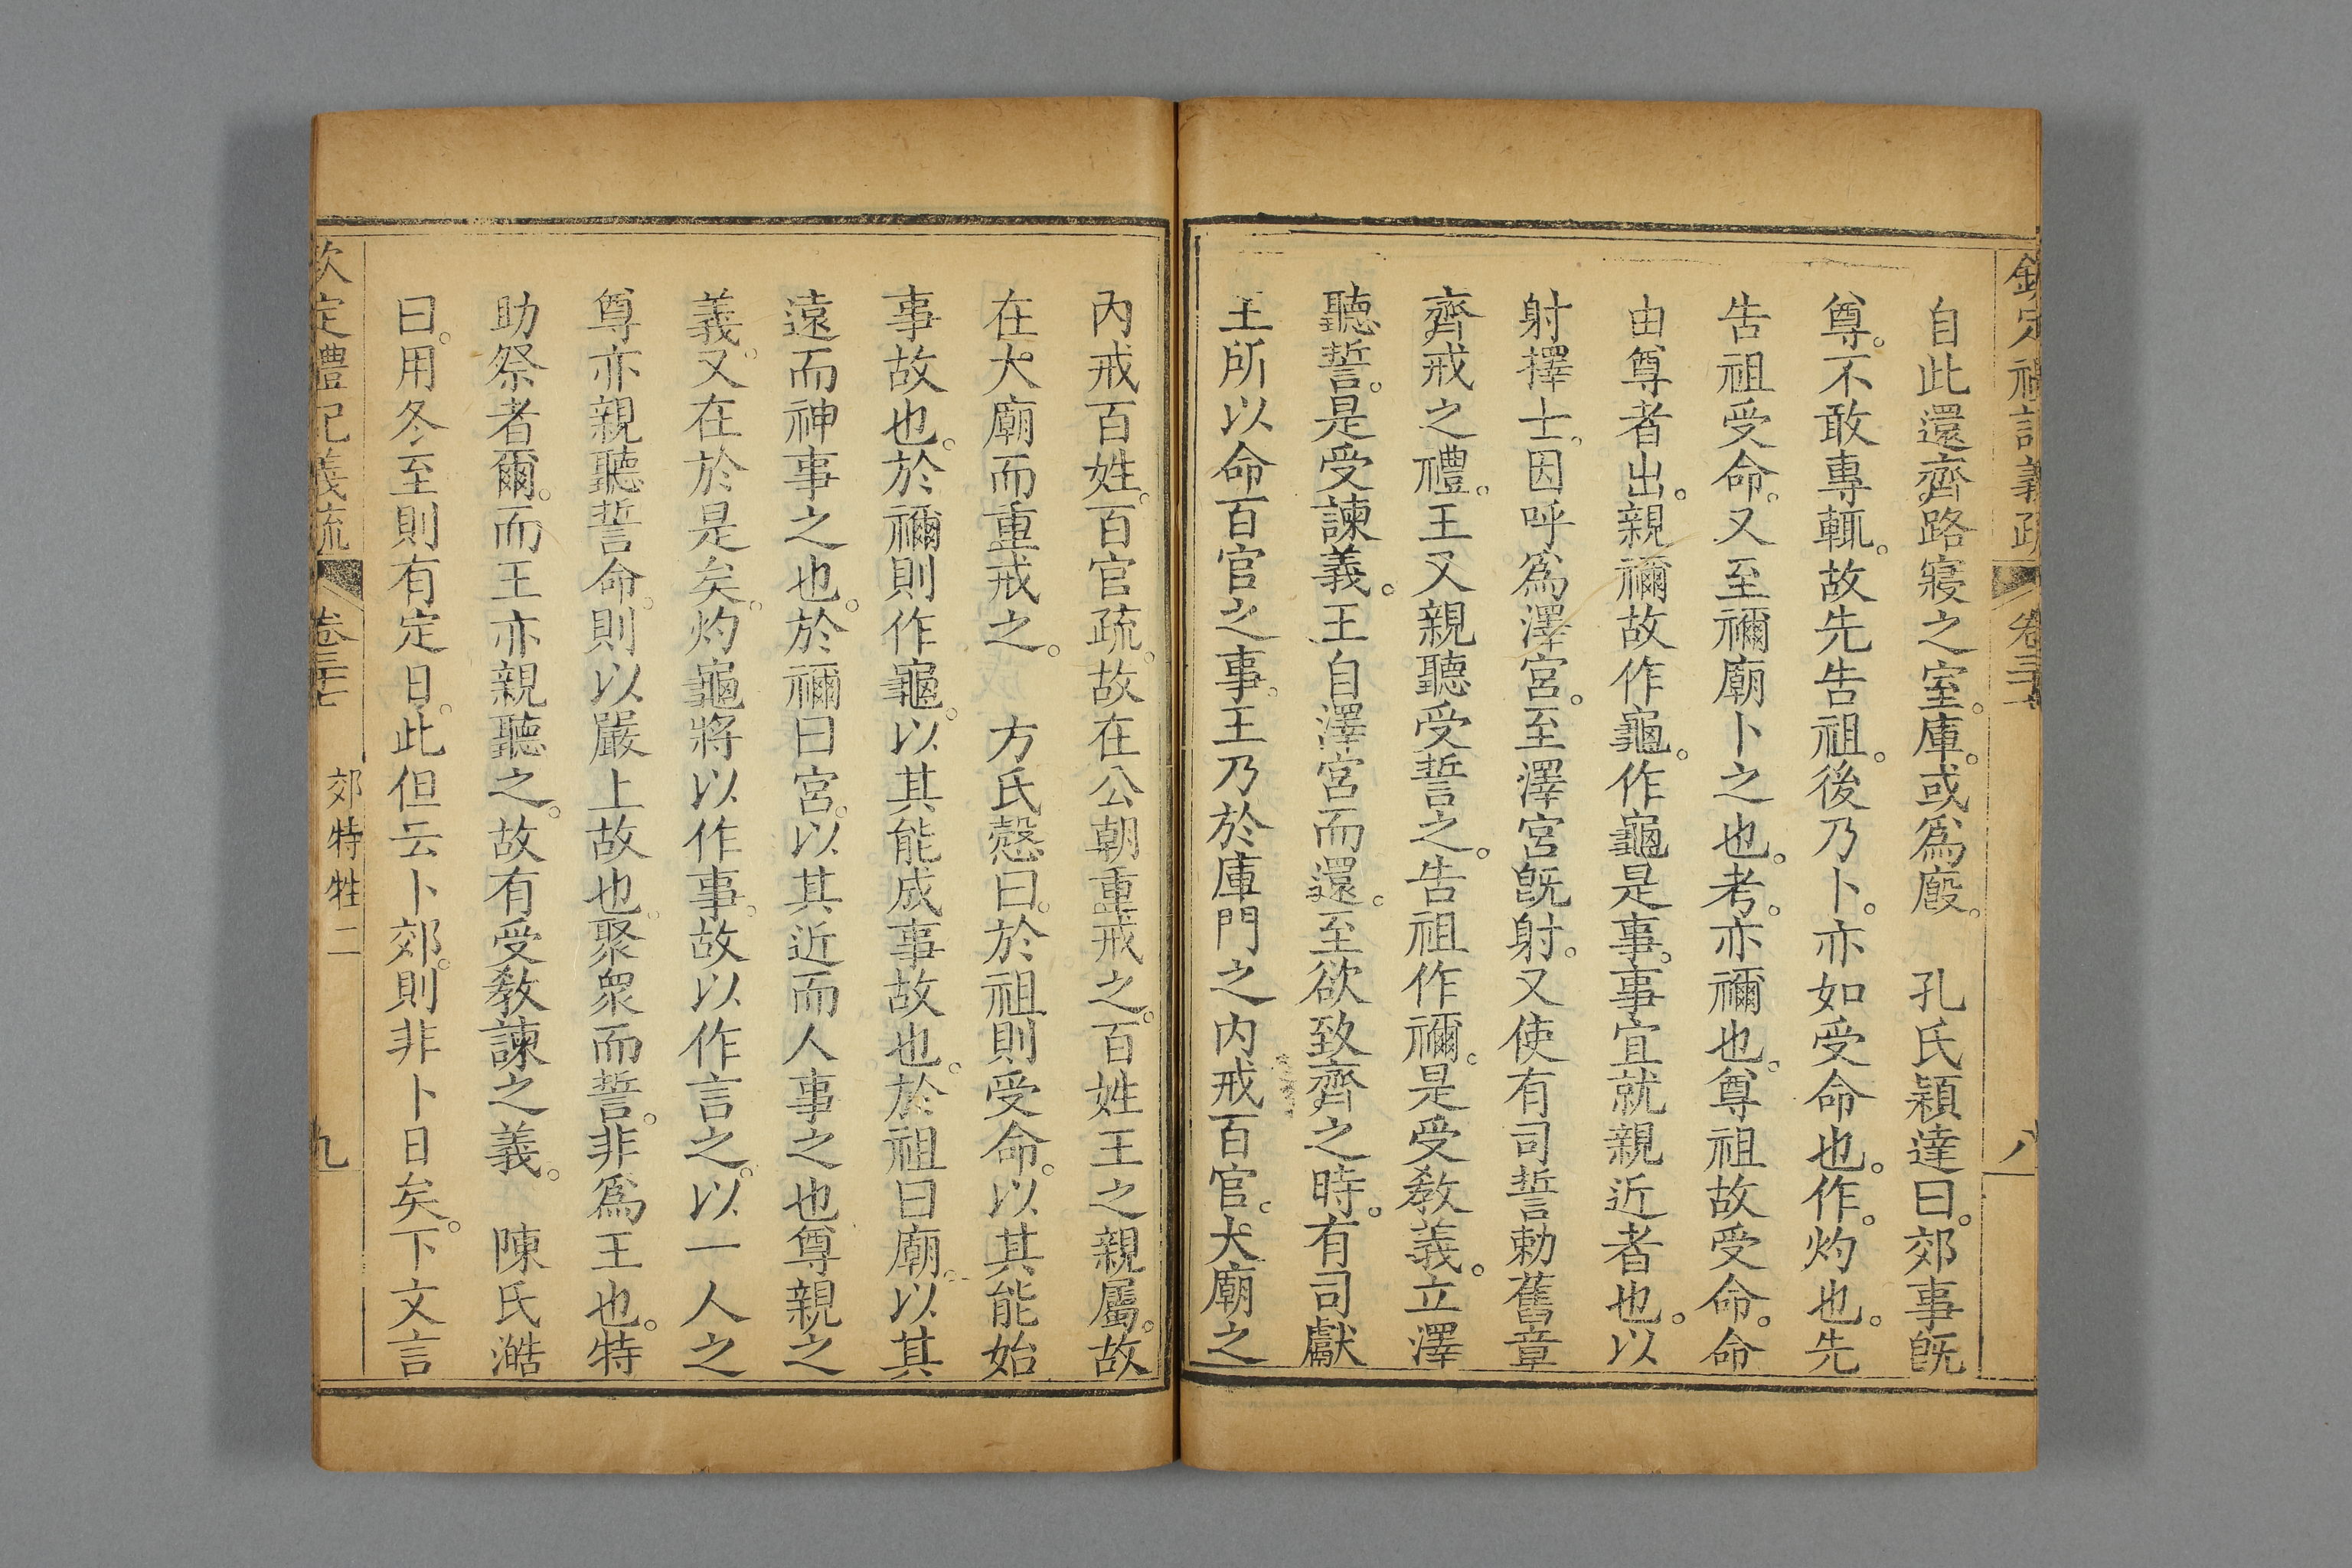 欽定禮記義疏 卷三十七 八
自此還齊路寢之室。庫。或爲廄。 孔氏穎達曰。郊事旣
尊。不敢專輒。故先告祖。後乃卜。亦如受命也。作。灼也。先
告祖受命。又至禰廟卜之也。考。亦禰也。尊祖故受命。命
由尊者出。親禰故作龜。作龜是事。事宜就親近者也。以
射擇士。因呼爲澤宮。至澤宮旣射。又使有司誓勅舊章
齊戒之禮。王又親聽受誓之。告祖作禰。是受敎義。立澤
聽誓。是受諫義。王自澤宮而還。至欲致齊之時。有司獻
王所以命百官之事。王乃於庫門之內戒百官。大廟之
內戒百姓。百官疏。故在公朝重戒之。百姓王之親屬。故
在大廟而重戒之。 方氏慤曰。於祖則受命。以其能始
事故也。於禰則作龜。以其能成事故也。於祖曰廟。以其
遠而神事之也。於禰曰宮。以其近而人事之也尊親之
義。又在於是矣。灼龜將以作事。故以作言之。以一人之
尊亦親聽誓命。則以嚴上故也。聚衆而誓。非爲王也。特
助祭者爾。而王亦親聽之。故有受敎諫之義。 陳氏澔
曰。用冬至則有定日。此但云卜郊。則非卜日矣。下文言
欽定禮記義疏 卷三十七 郊特牲二 九